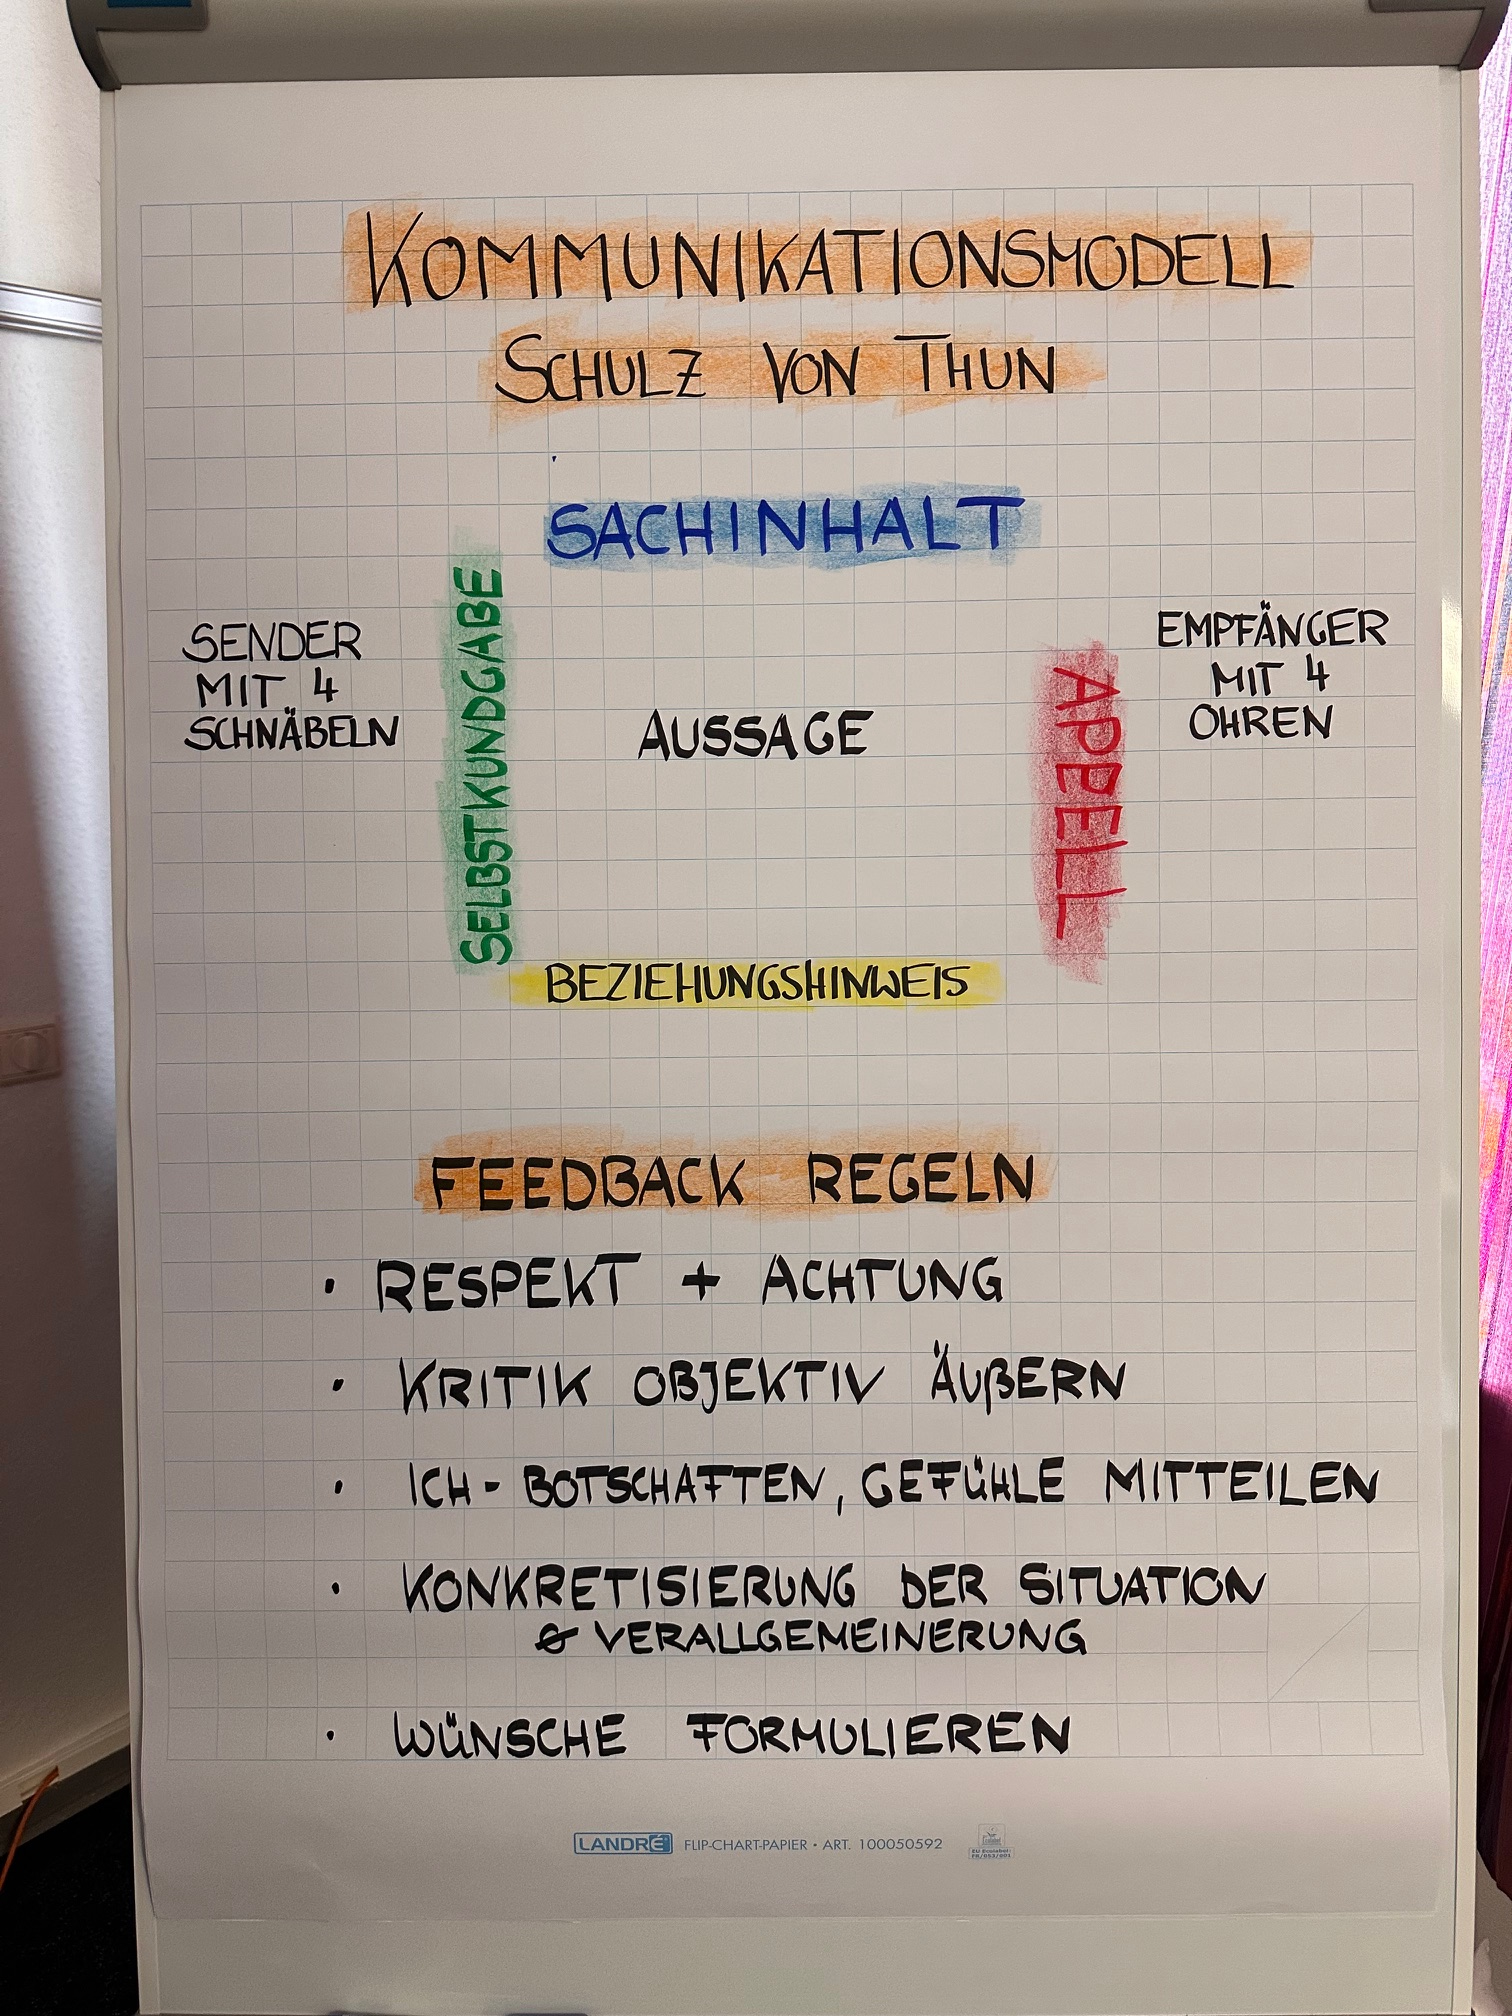 KOMMUNIKATIONSMODELL
SCHULZ VON THUN
SACHINHALT
SELBSTKUNDGABE
SENDER
MIT 4
SCHNÄBELN
AUSSAGE
APELL
EMPFÄNGER
MIT 4
OHREN
BEZIEHUNGSHINWEIS
FEEDBACK REGELN
• RESPEKT + ACHTUNG
• KRITIK OBJEKTIV ÄUßERN
• ICH-BOTSCHAFTEN, GEFÜHLE MITTEILEN
• KONKRETISIERUNG DER SITUATION
VERALLGEMEINERUNG
• WÜNSCHE FORMULIEREN
LANDRÉ FLIP-CHART-PAPIER • ART. 100050592